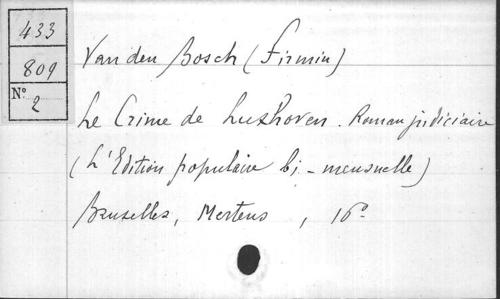 433
809
N° 2
Van den Bosch (Firmin)
Le Crime de Luxhoven. Roman judiciaire
(L'Edition populaire bi-mensuelle)
Bruxelles, Mertens , 16°